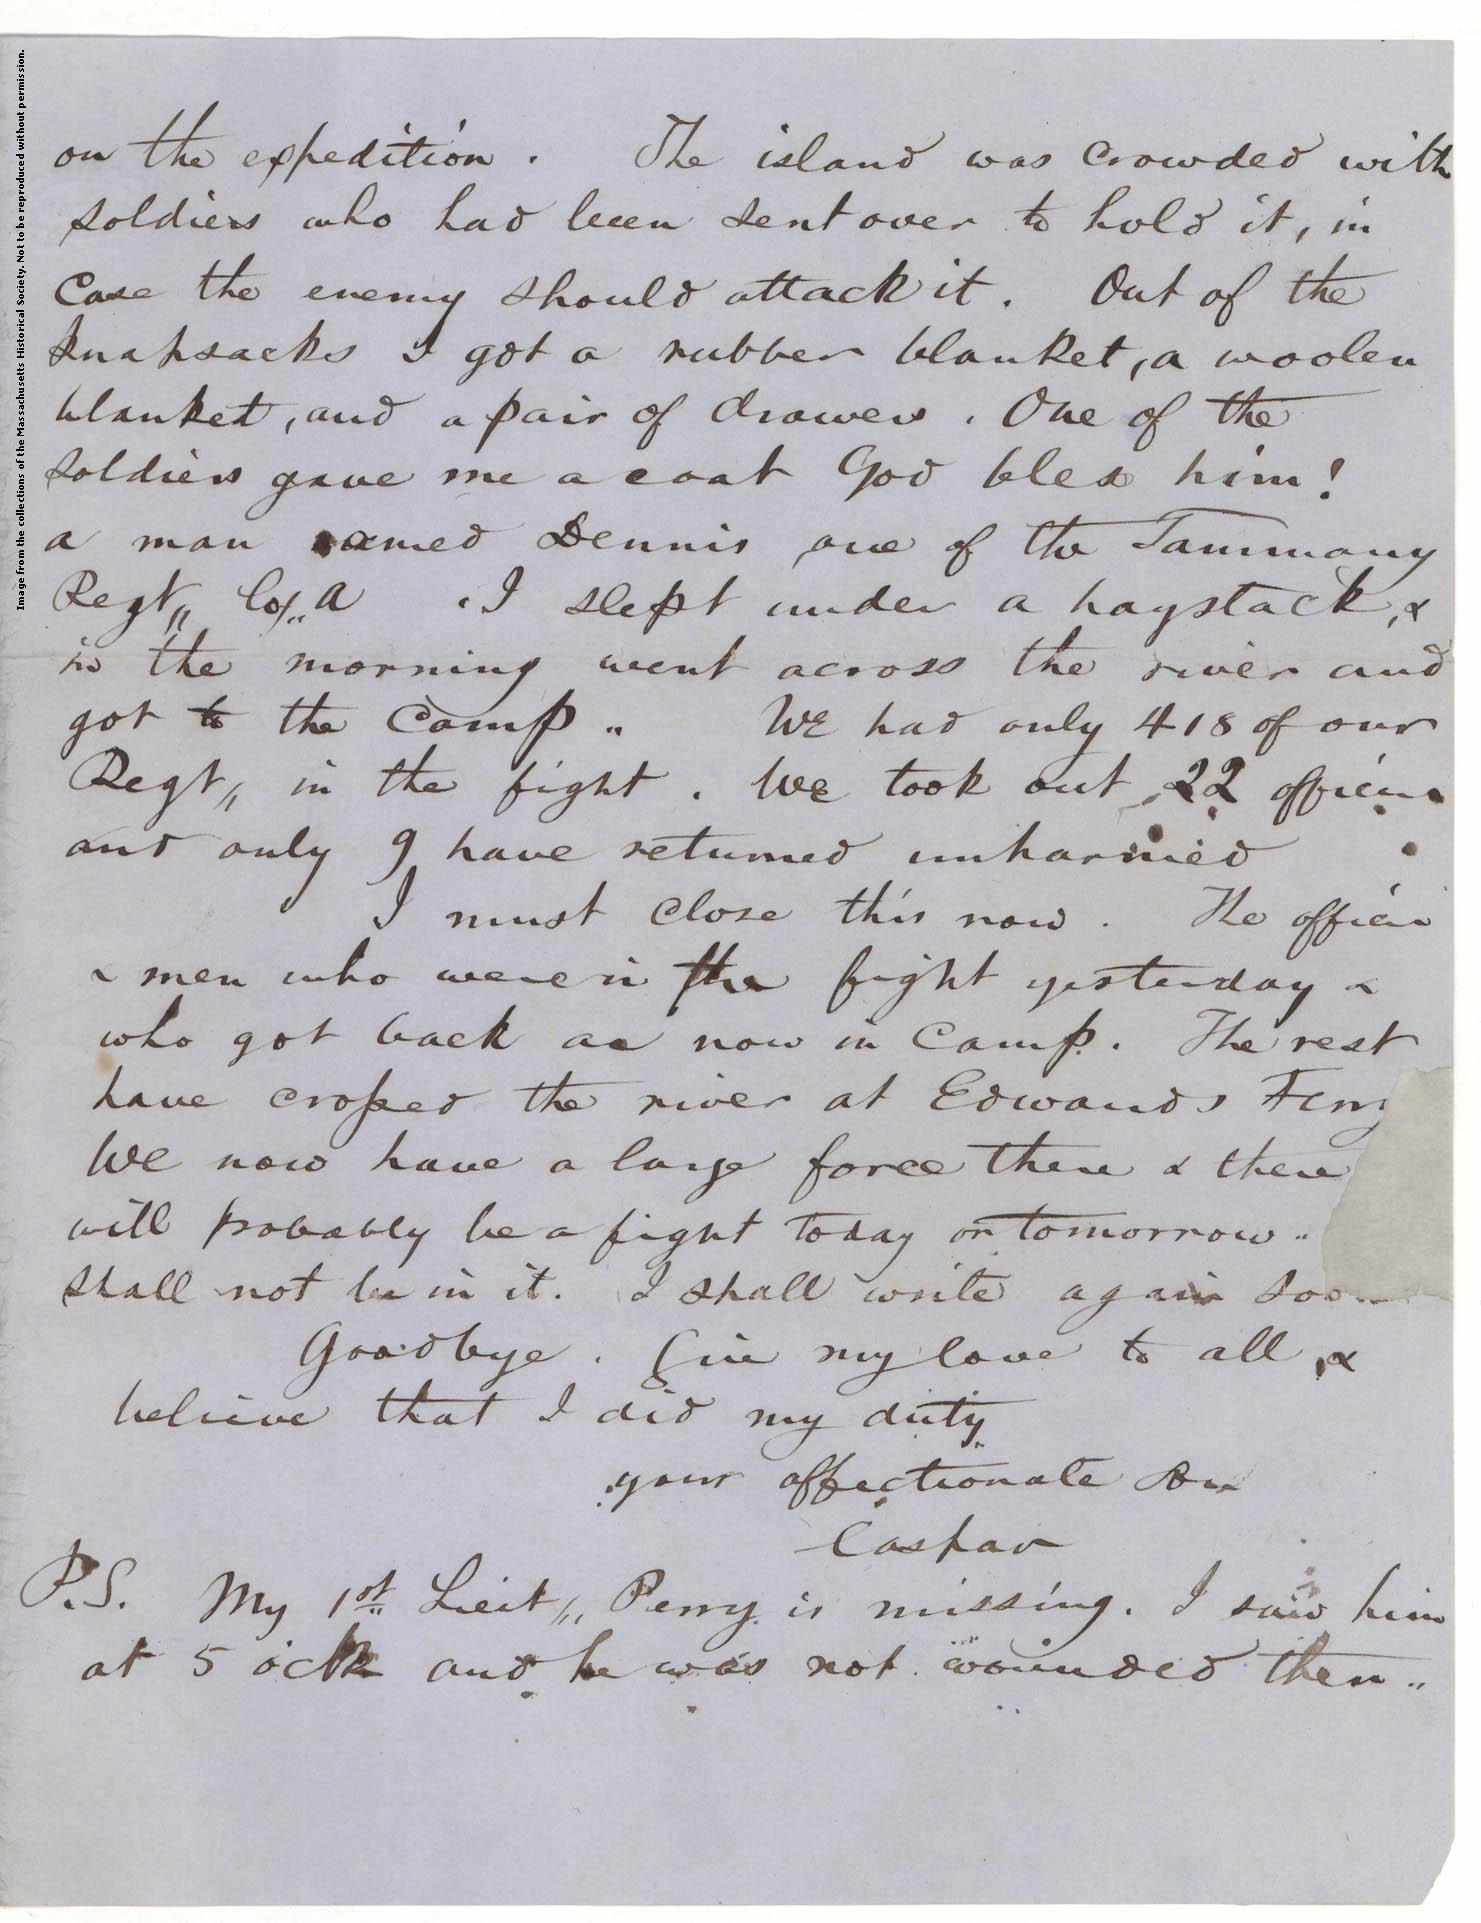 Image from the collections of the Massachusetts Historical Society. Not to be reproduced without permission.
on the expedition. The island was crowded with
soldiers who had been sent over to hold it, in
case the enemy should attack it. Out of the
knapsacks I got a rubber blanket, a woolen
blanket, and a pair of drawers. One of the
soldiers gave me a coat God bless him!
a man named Dennis one of the Tammany
Regt,, Co,, A . I slept under a haystack, &
in the morning went across the river and
got to the camp.. We had only 418 of our
Regt,, in the fight. We took out 22 officers
and only 9 have returned unharmed
I must close this now. The officers
& men who were in the fight yesterday &
who got back are now in camp. The rest
have crossed the river at Edwards Ferry
We now have a large force there & there
will probably be a fight today or tomorrow..
shall not be in it. I shall write again soon
Goodbye. Give my love to all, &
believe that I did my duty
your affectionate son
Caspar
P.S. My 1st Lieit,, Perry is missing. I saw him
at 5 ock and he was not wounded then..